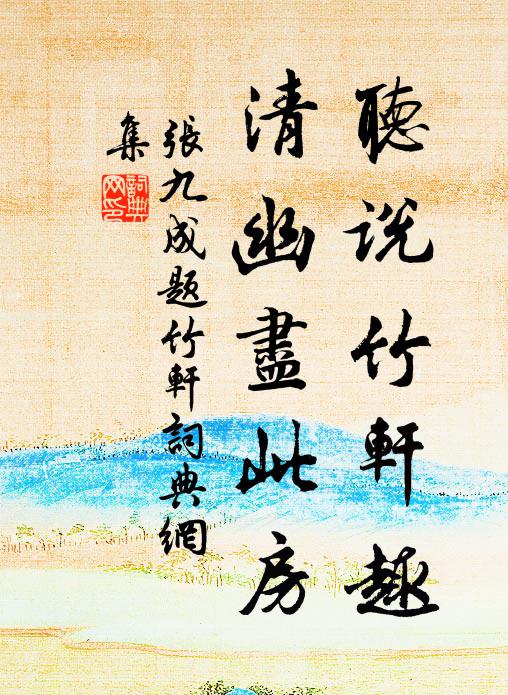 聽說竹軒趣
清幽盡此房
張九成題竹軒詞典網
集
詞典
网印